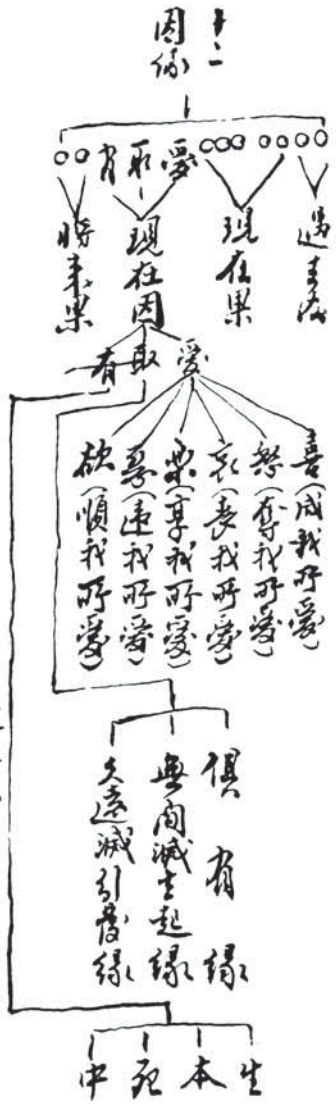 十二
因緣
○○○○○○○愛取有○○
過去因
現在果
現在因
將來果
愛
取
有
喜(成我所愛)
怒(奪我所愛)
哀(喪我所愛)
樂(享我所愛)
惡(違我所愛)
欲(順我所愛)
俱有緣
無間滅生起緣
久遠滅引發緣
生
本
死
中